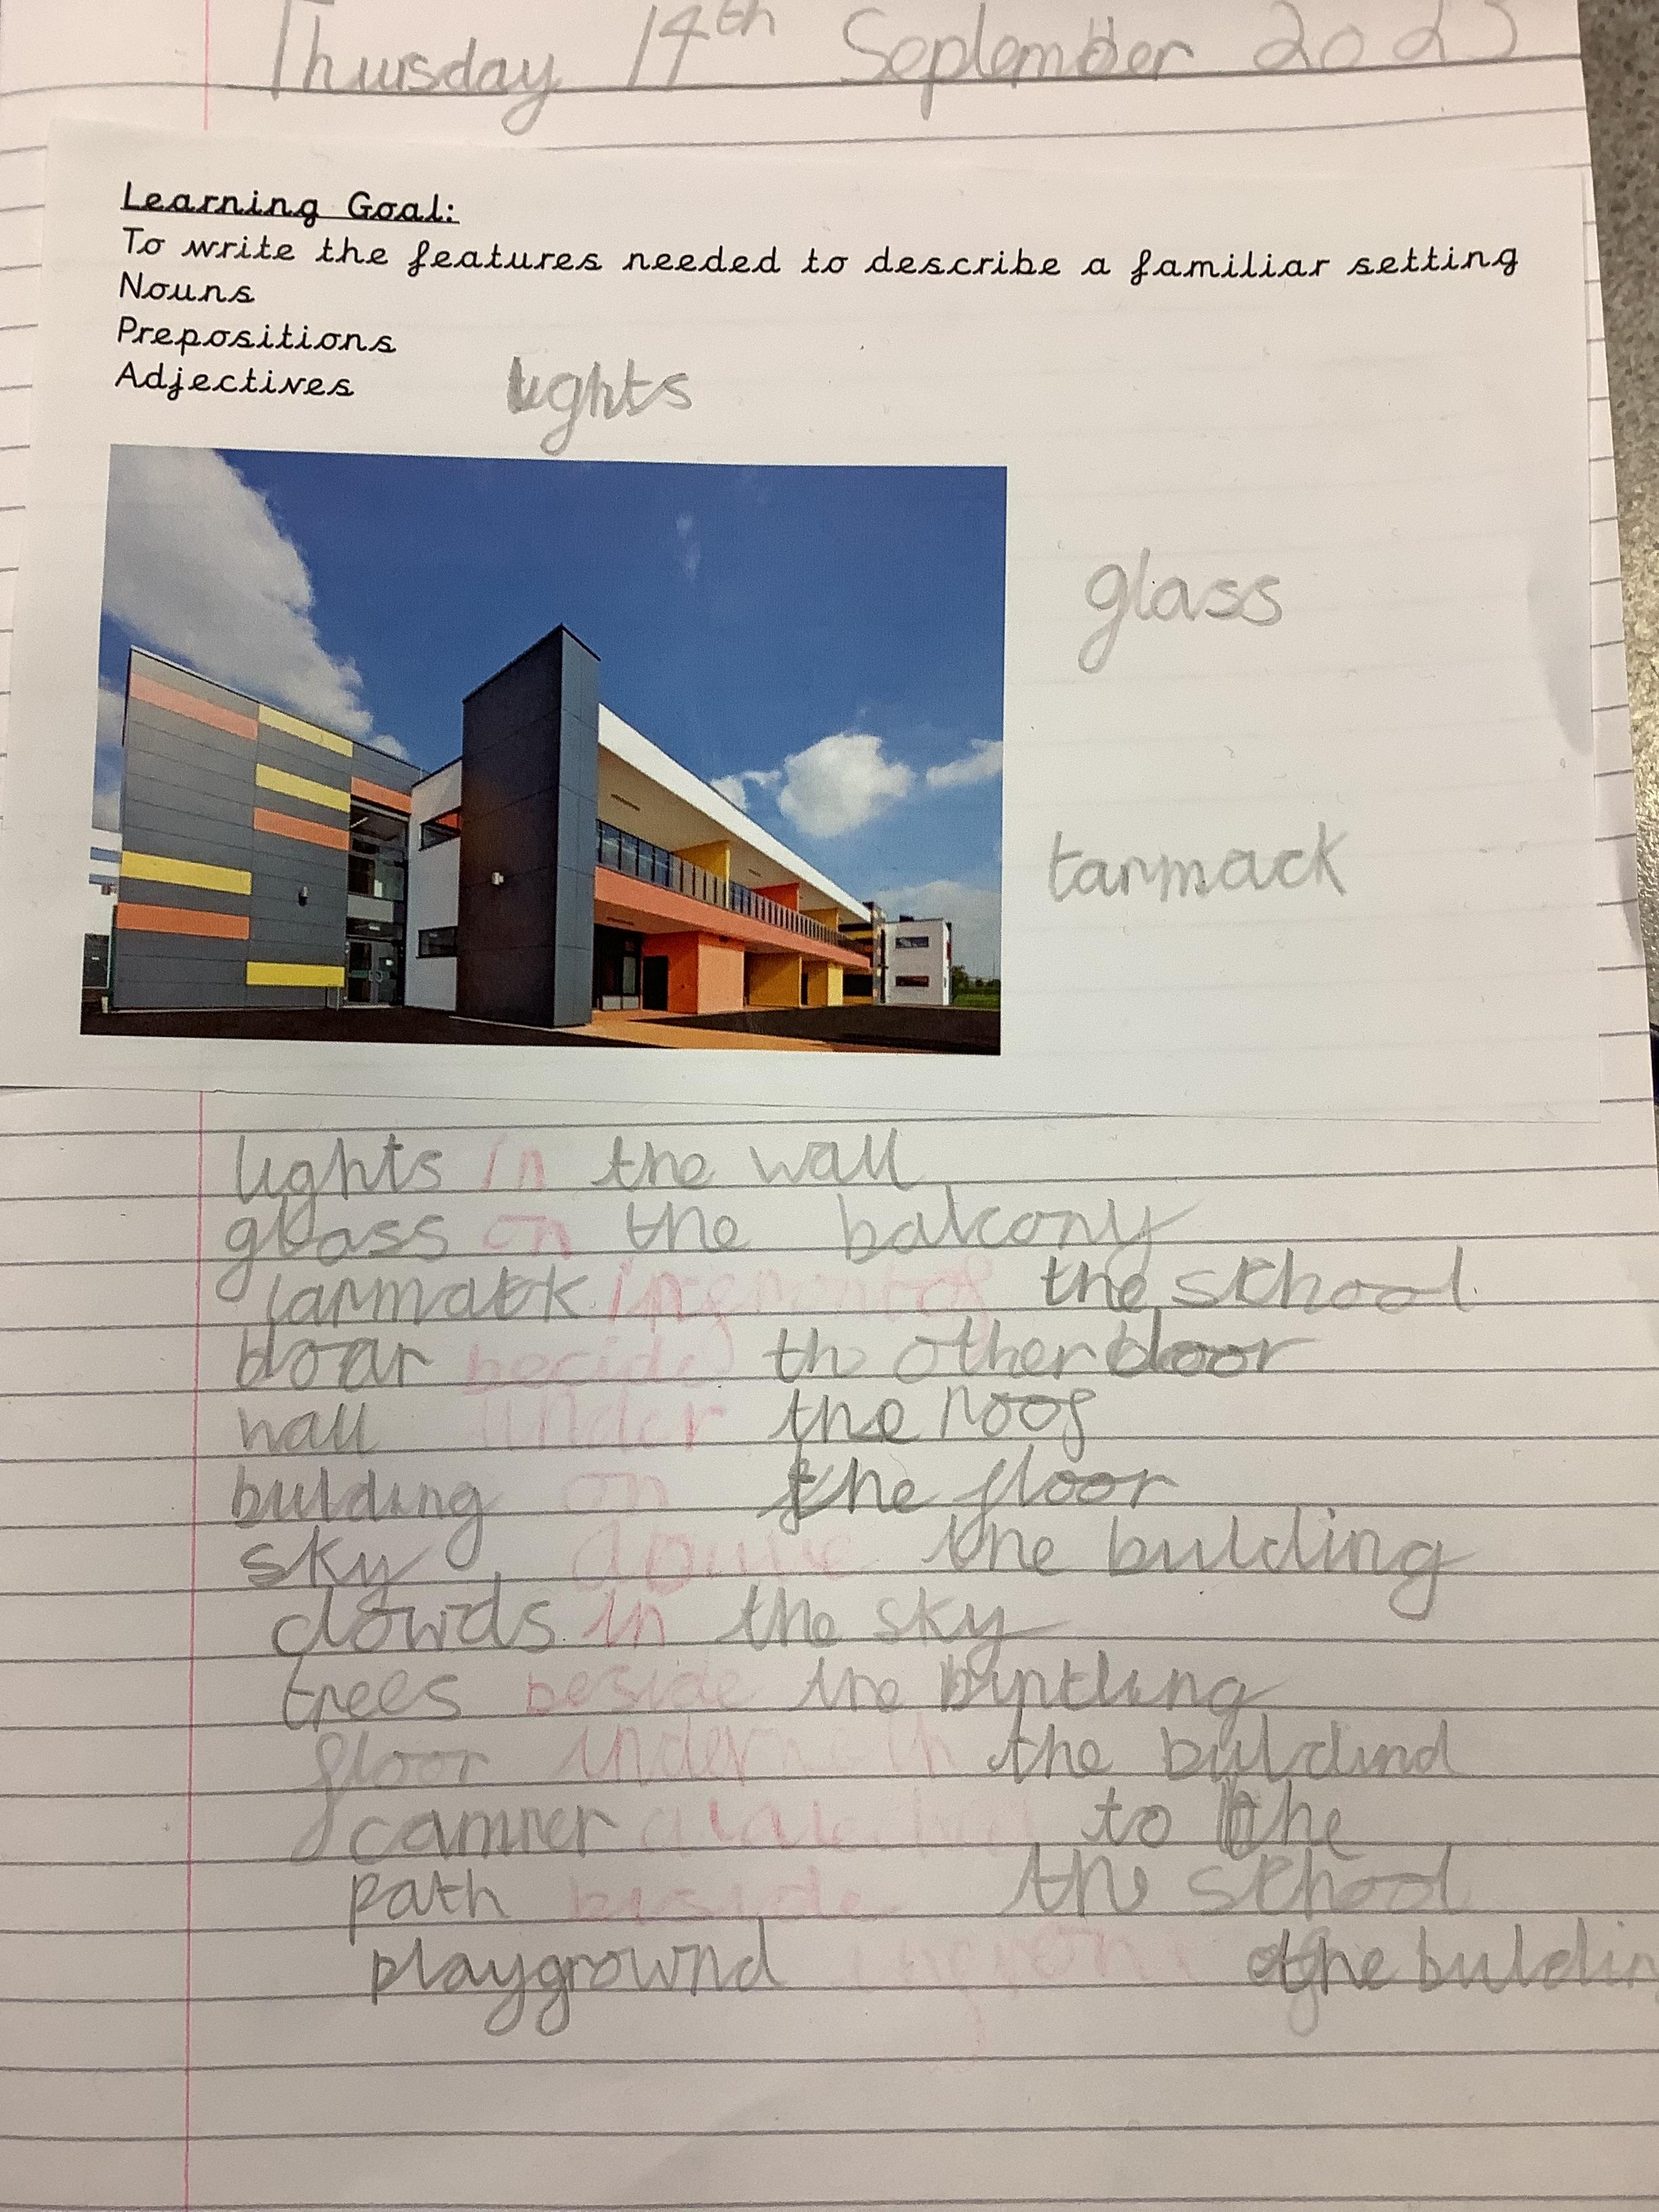 Thursday 14th September 2023
Learning Goal:
To write the features needed to describe a familiar setting
Nouns
Prepositions
Adjectives
lights
glass
tarmack
lights in the wall
glass on the balcony
tarmack infrontof the school
door becide the other door
wall under the roof
bulding on the floor
sky above the bulding
clowds in the sky
trees beside the
floor underneath the buldind
camrer to the
path beside the school
playgrownd infront of the buldin